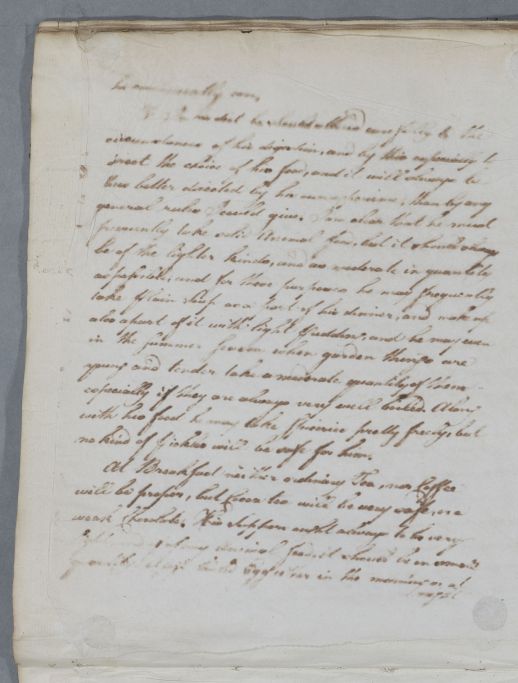 he occasionally can,
In diet he should attend carefully to the
circumstances of his digestion, and by this experience to
direct the choice of his food, and it will always be
thus better directed by his own experience, than by any
general rules I could give. I'm clear that he must
frequently take only Animal food, but it should always
be of the lighter kinds, and as moderate in quantity
as possible, and for these purposes he may frequently
take plain Soup as a part of his dinner, and make up
also a part of it with light Pudding, and he may even
in the Summer Season when garden things are
young and tender take a moderate quantity of them
especially if they are always very well boiled. Along
with his food he may take pretty freely, but
no kind of Pickles will be safe for him.
At Breakfast neither ordinary Tea, nor Coffee
will be proper, but tea will be very safe, or
weak Chocolate. His Suppers ought always to be very
Animal food it should be
Eggs in the morning or at